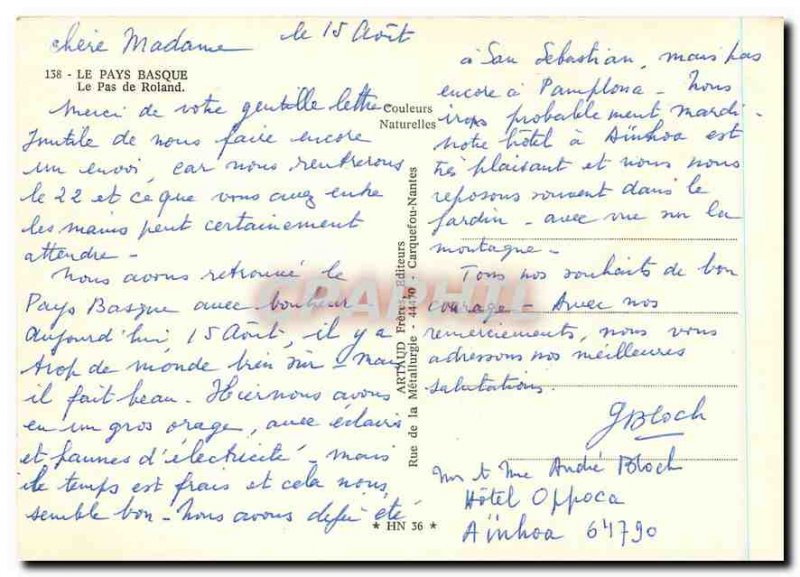 chère Madame le 15 Août
138 - LE PAYS BASQUE
Le Pas de Roland.
Merci de votre gentille lettre
Inutile de nous faire encore
un envoi, car nous rentrerons
le 22 et ce que vous avez entre
les mains peut certainement
attendre -
Nous avons retrouvé le
Pays Basque avec bonheur
aujourd'hui 15 Août, il y a
trop de monde bien sûr - mais
il fait beau. Hier nous avons
eu un gros orage, avec éclairs
et pannes d'électricité - mais
le temps est frais et cela nous
semble bon - Nous avons déjà été
Couleurs
Naturelles
ARTAUD Frères, Editeurs
Rue de la Métallurgie - 44470 - Carquefou-Nantes
* HN 36 *
à San Sebastian, mais pas
encore à Pamplona - Nous
irons probablement mardi -
notre hôtel à Aïnhoa est
très plaisant et nous nous
reposons souvent dans le
jardin - avec vue sur la
montagne -
Tous nos souhaits de bon
courage - Avec nos
remerciements, nous vous
adressons nos meilleures
salutations.
GBloch
Mr et Mme André Bloch
Hôtel Oppoca
Aïnhoa 64790